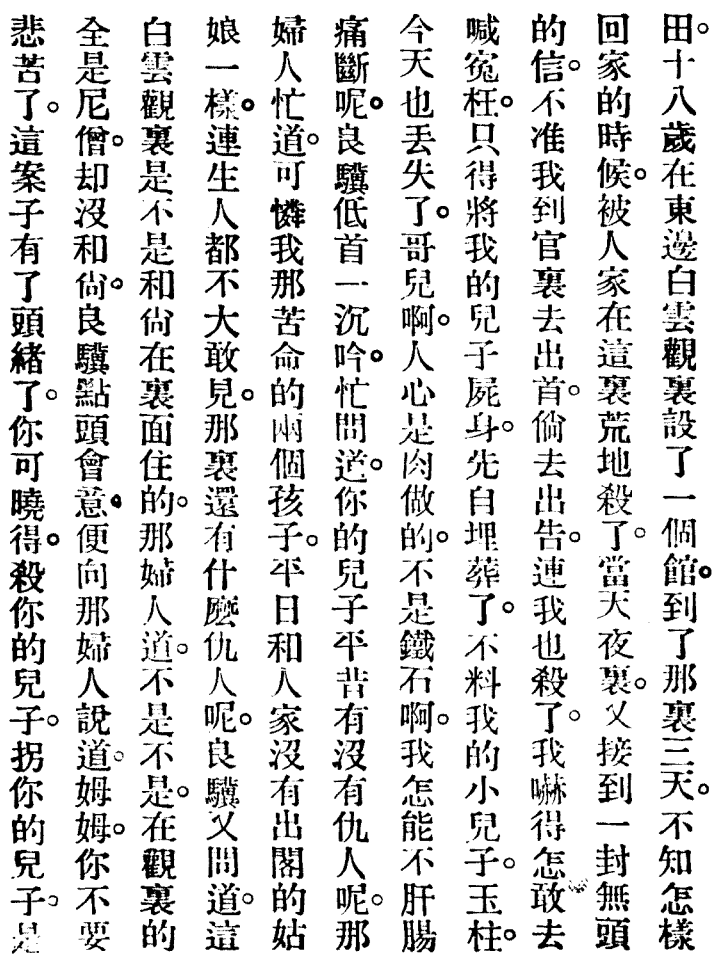 田。十八歲在東邊白雲觀裏設了一個館。到了那裏三天。不知怎樣
回家的時候。被人家在這裏荒地殺了。當天夜裏。又接到一封無頭
的信。不准我到官裏去出首。倘去出告。連我也殺了。我嚇得怎敢去
喊冤枉。只得將我的兒子屍身。先自埋葬了。不料我的小兒子。玉柱。
今天也丟失了。哥兒啊。人心是肉做的。不是鐵石啊。我怎能不肝腸
痛斷呢。良驥低首一沉吟。忙問道。你的兒子平昔有沒有仇人呢。那
婦人忙道。可憐我那苦命的兩個孩子。平日和人家沒有出閣的姑
娘一樣。連生人都不大敢見。那裏還有什麽仇人呢。良驥又問道。這
白雲觀裏是不是和尙在裏面住的。那婦人道。不是不是。在觀裏的
全是尼僧。却沒和尙。良驥點頭會意。便向那婦人說道。姆姆。你不要
悲苦了。這案子有了頭緒了。你可曉得。殺你的兒子。拐你的兒子。是